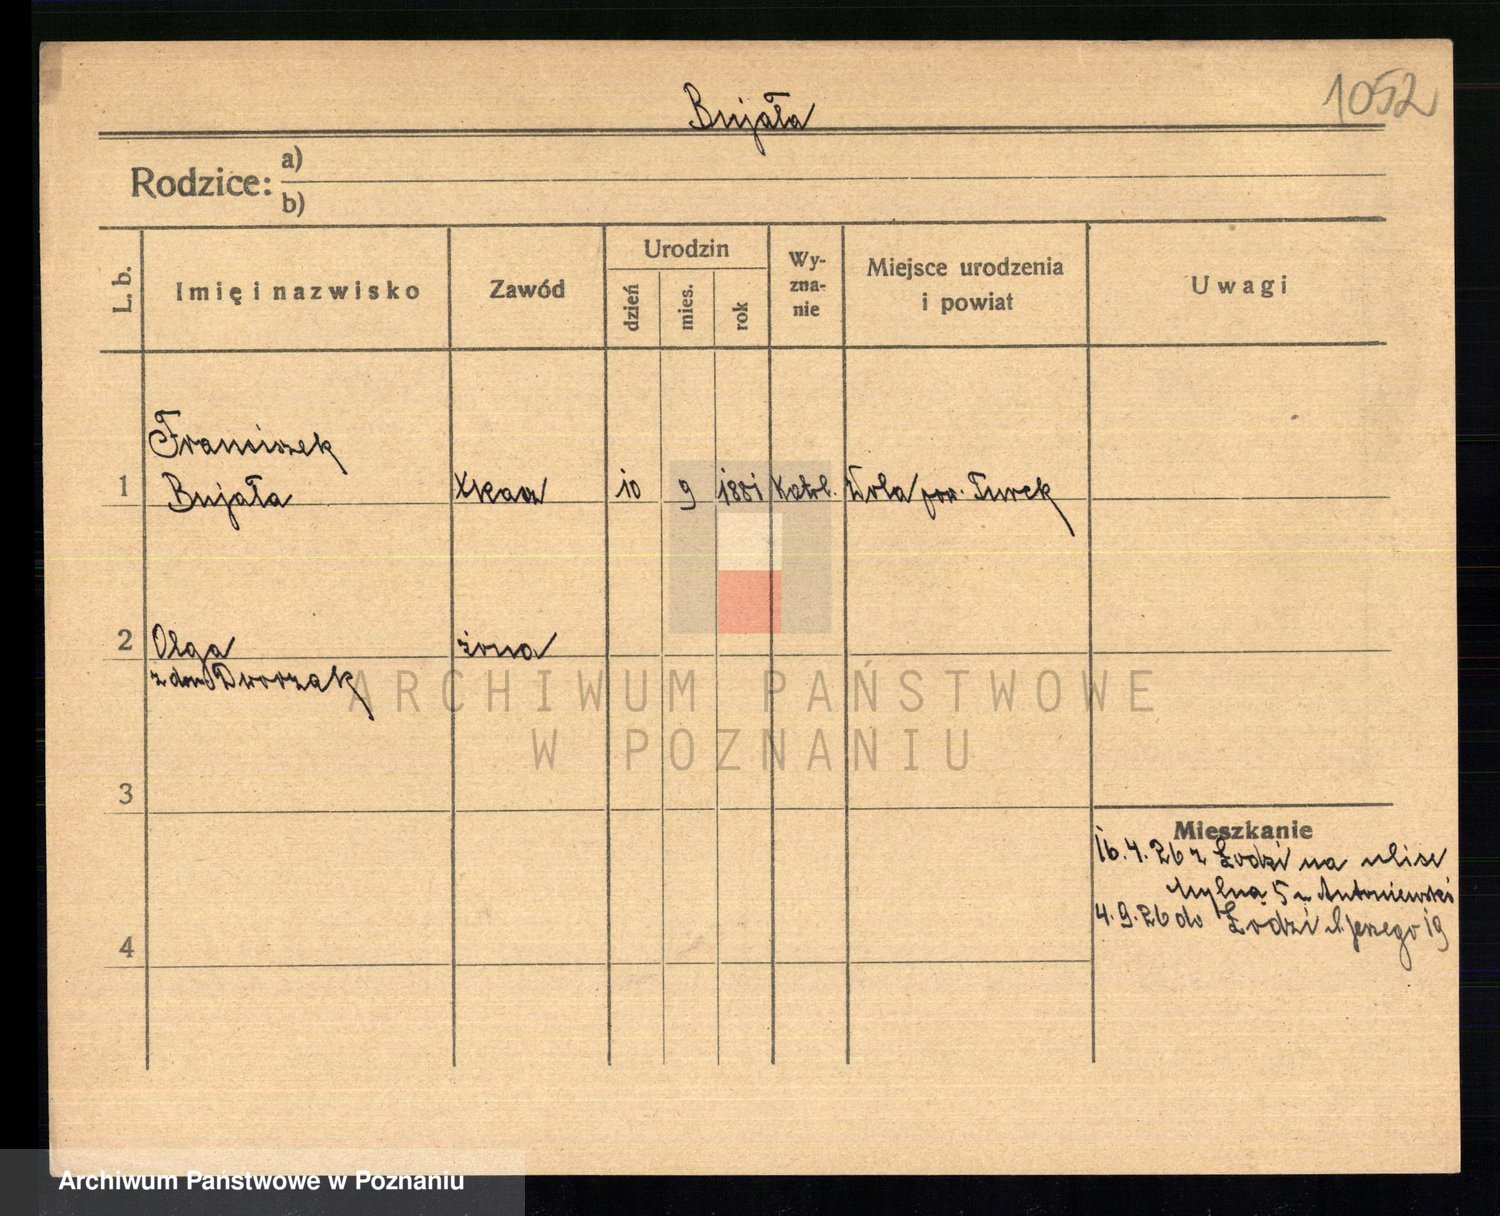 1052
Bujała
Rodzice: a)
b)
L. b.
Imię i nazwisko
Zawód
Urodzin
dzień
mies.
rok
Wy-
zna-
nie
Miejsce urodzenia
i powiat
Uwagi
Franciszek
1 Bujała tkacz 10 9 1881 Katol. Wola pow. Turek
2 Olga żona
z domu Dworzak
ARCHIWUM PAŃSTWOWE
W POZNANIU
3
Mieszkanie
16.4.26 z Łodzi na ulice
Mylną 5 u Antoniewski
4.9.26 do Łodzi 19
4
Archiwum Państwowe w Poznaniu